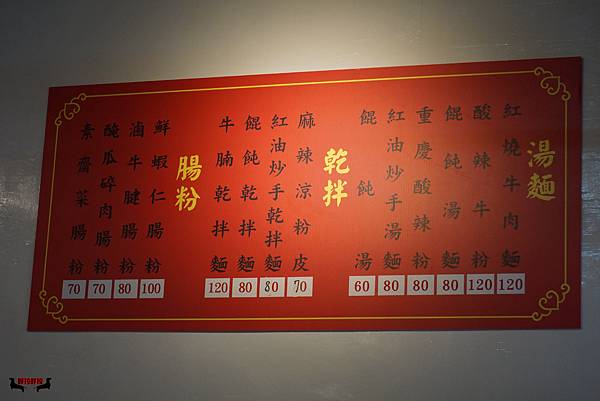 湯麵
紅燒牛肉麵 120
酸辣牛肉粉 120
餛飩湯麵 80
重慶酸辣粉 80
紅油炒手湯麵 80
餛飩湯 60
乾拌
麻辣涼粉皮 70
紅油炒手乾拌麵 80
餛飩乾拌麵 80
牛腩乾拌麵 120
腸粉
鮮蝦仁腸粉 100
滷牛腱腸粉 80
醃瓜碎肉腸粉 70
素齋菜腸粉 70